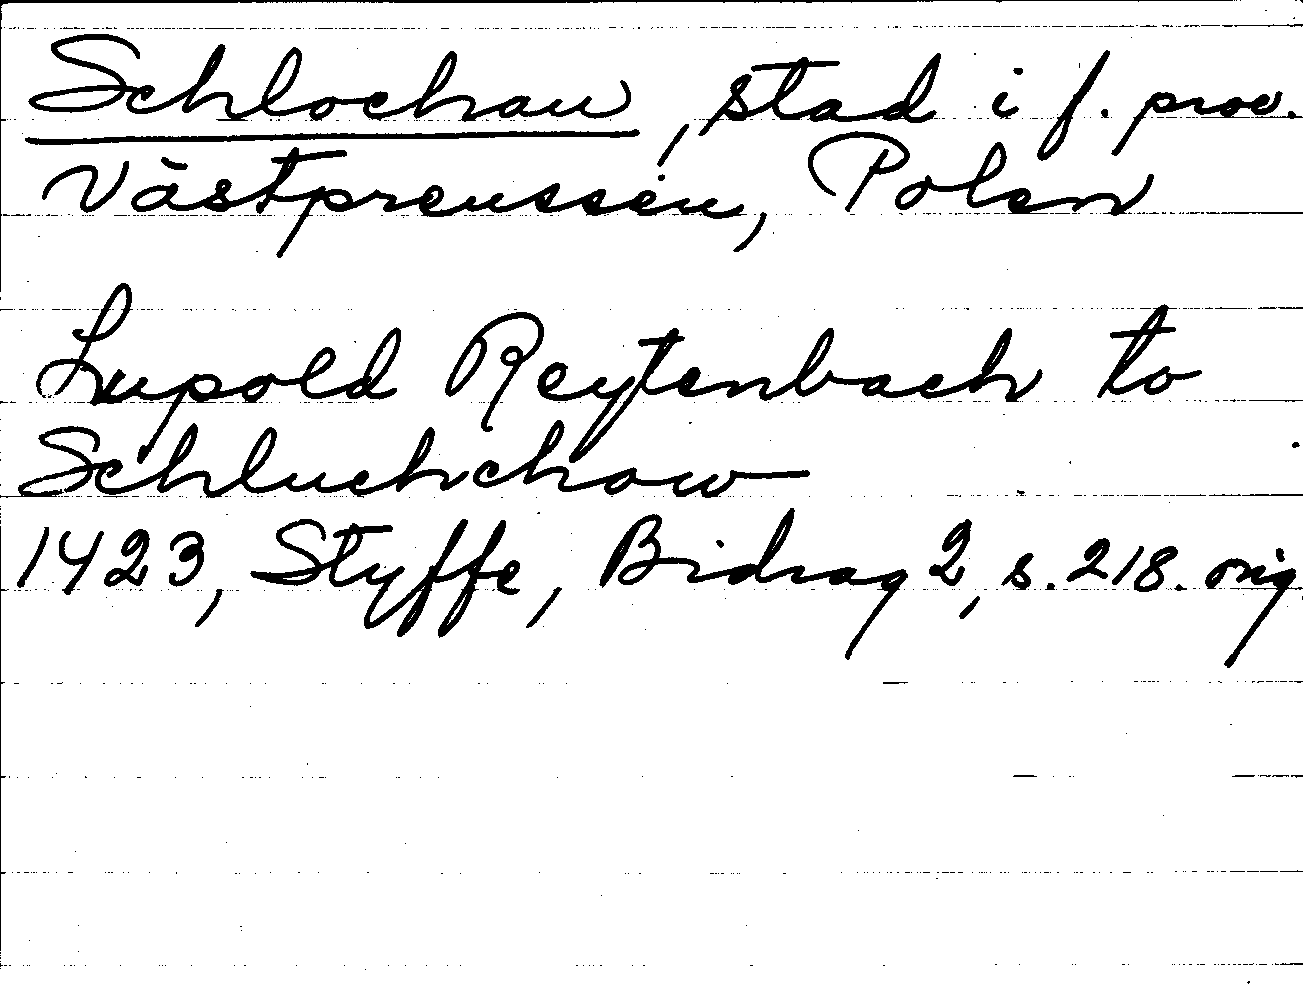 Schlochau, stad i f. prov.
Västpreussen, Polen
Lupold Reytenbach to
Schluchchow
1423, Styffe, Bidrag 2, s. 218. orig.